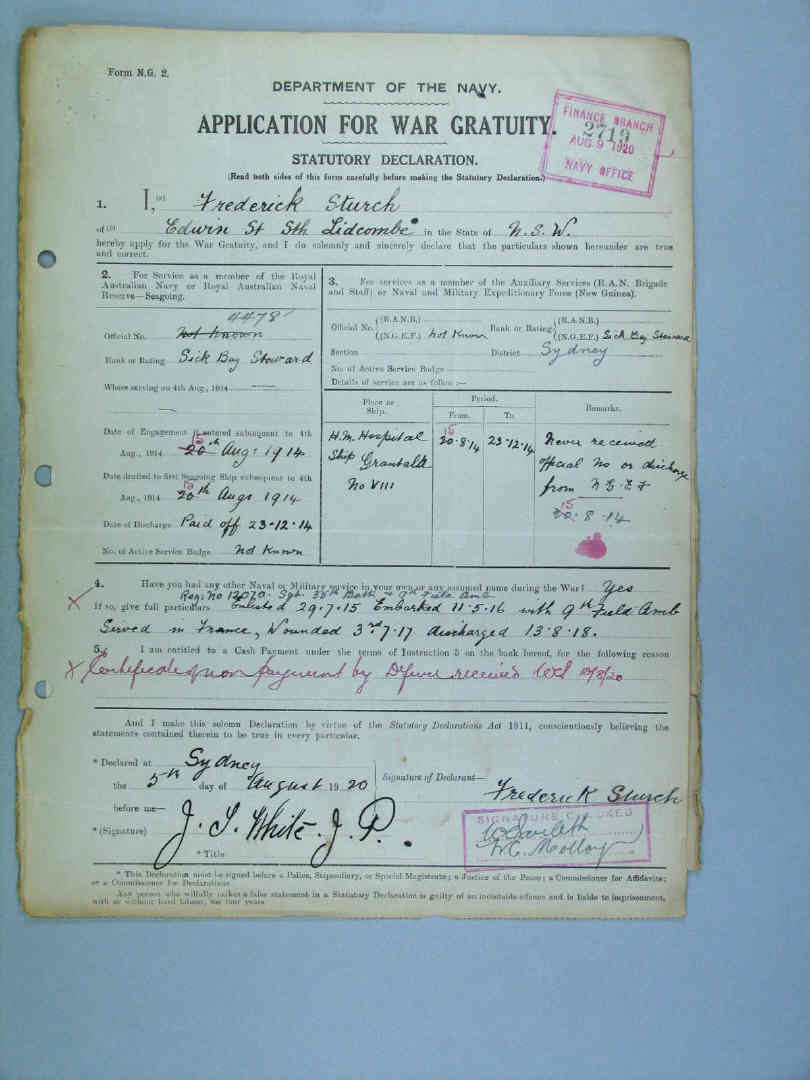 Form N.G. 2.
DEPARTMENT OF THE NAVY.
APPLICATION FOR WAR GRATUITY.
FINANCE BRANCH
2719
AUG 9 1920
NAVY OFFICE
STATUTORY DECLARATION.
(Read both sides of this form carefully before making the Statutory Declaration.)
1. I, Frederick Sturch
of Edwin St Sth Lidcombe in the State of N.S.W.
hereby apply for the War Gratuity, and I do solemnly and sincerely declare that the particulars shown hereunder are true
and correct.
2. For Service as a member of the Royal
Australian Navy or Royal Australian Naval
Reserve—Seagoing.
4478
Official No. Not Known
Rank or Rating Sick Bay Steward
Where serving on 4th Aug., 1914
Date of Engagement if entered subsequent to 4th
15
Aug., 1914 20th Aug: 1914
Date drafted to first Seagoing Ship subsequent to 4th
15
Aug., 1914 20th Augs 1914
Date of Discharge Paid off 23.12.14
No. of Active Service Badge Not Known
3. For services as a member of the Auxiliary Services (R.A.N. Brigade
and Staff) or Naval and Military Expeditionary Force (New Guinea).
Official No. (R.A.N.B.) Rank or Rating (R.A.N.B.)
(N.G.E.F.) Not Known (N.G.E.F.) Sick Bay Steward
Section District Sydney
No. of Active Service Badge
Details of service are as follow :—
Place or Ship. Period. Remarks.
From. To.
H.M. Hospital
Ship Grantala
No VIII
15
20.8.14 23.12.14
Never received
official no or discharge
from N.G.E.F
15
20.8.14
4. Have you had any other Naval or Military service in your own or any assumed name during the War? Yes
Reg: No 12070. Sgt. 35th Batt & 9th Field Amb
If so, give full particulars Enlisted 29.7.15 Embarked 11.5.16 with 9th Field Amb
Served in France, Wounded 3rd.7.17 discharged 13.8.18.
5. I am entitled to a Cash Payment under the terms of Instruction 5 on the back hereof, for the following reason
Certificate of non payment by received
And I make this solemn Declaration by virtue of the Statutory Declarations Act 1911, conscientiously believing the
statements contained therein to be true in every particular.
* Declared at Sydney
the 5th day of August 1920
Signature of Declarant—
Frederick Sturch
before me—
* (Signature) J. S. White. J.P.
* Title
SIGNATURE CHECKED
* This Declaration must be signed before a Police, Stipendiary, or Special Magistrate; a Justice of the Peace; a Commissioner for Affidavits;
or a Commissioner for Declarations
Any person who wilfully makes a false statement in a Statutory Declaration is guilty of an indictable offence and is liable to imprisonment,
with or without hard labour, for four years.